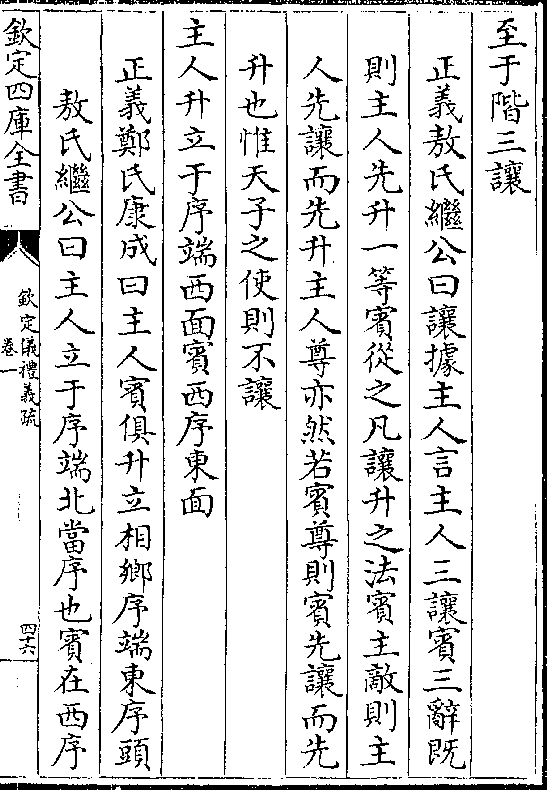 至于階三讓
正義敖氏繼公曰讓據主人言主人三讓賓三辭既
則主人先升一等賓從之凡讓升之法賓主敵則主
人先讓而先升主人尊亦然若賓尊則賓先讓而先
升也惟天子之使則不讓
主人升立于序端西面賓西序東面
正義鄭氏康成曰主人賓俱升立相鄉序端東序頭
敖氏繼公曰主人立于序端北當序也賓在西序
欽定四庫全書
欽定儀禮義疏
卷一
四十六